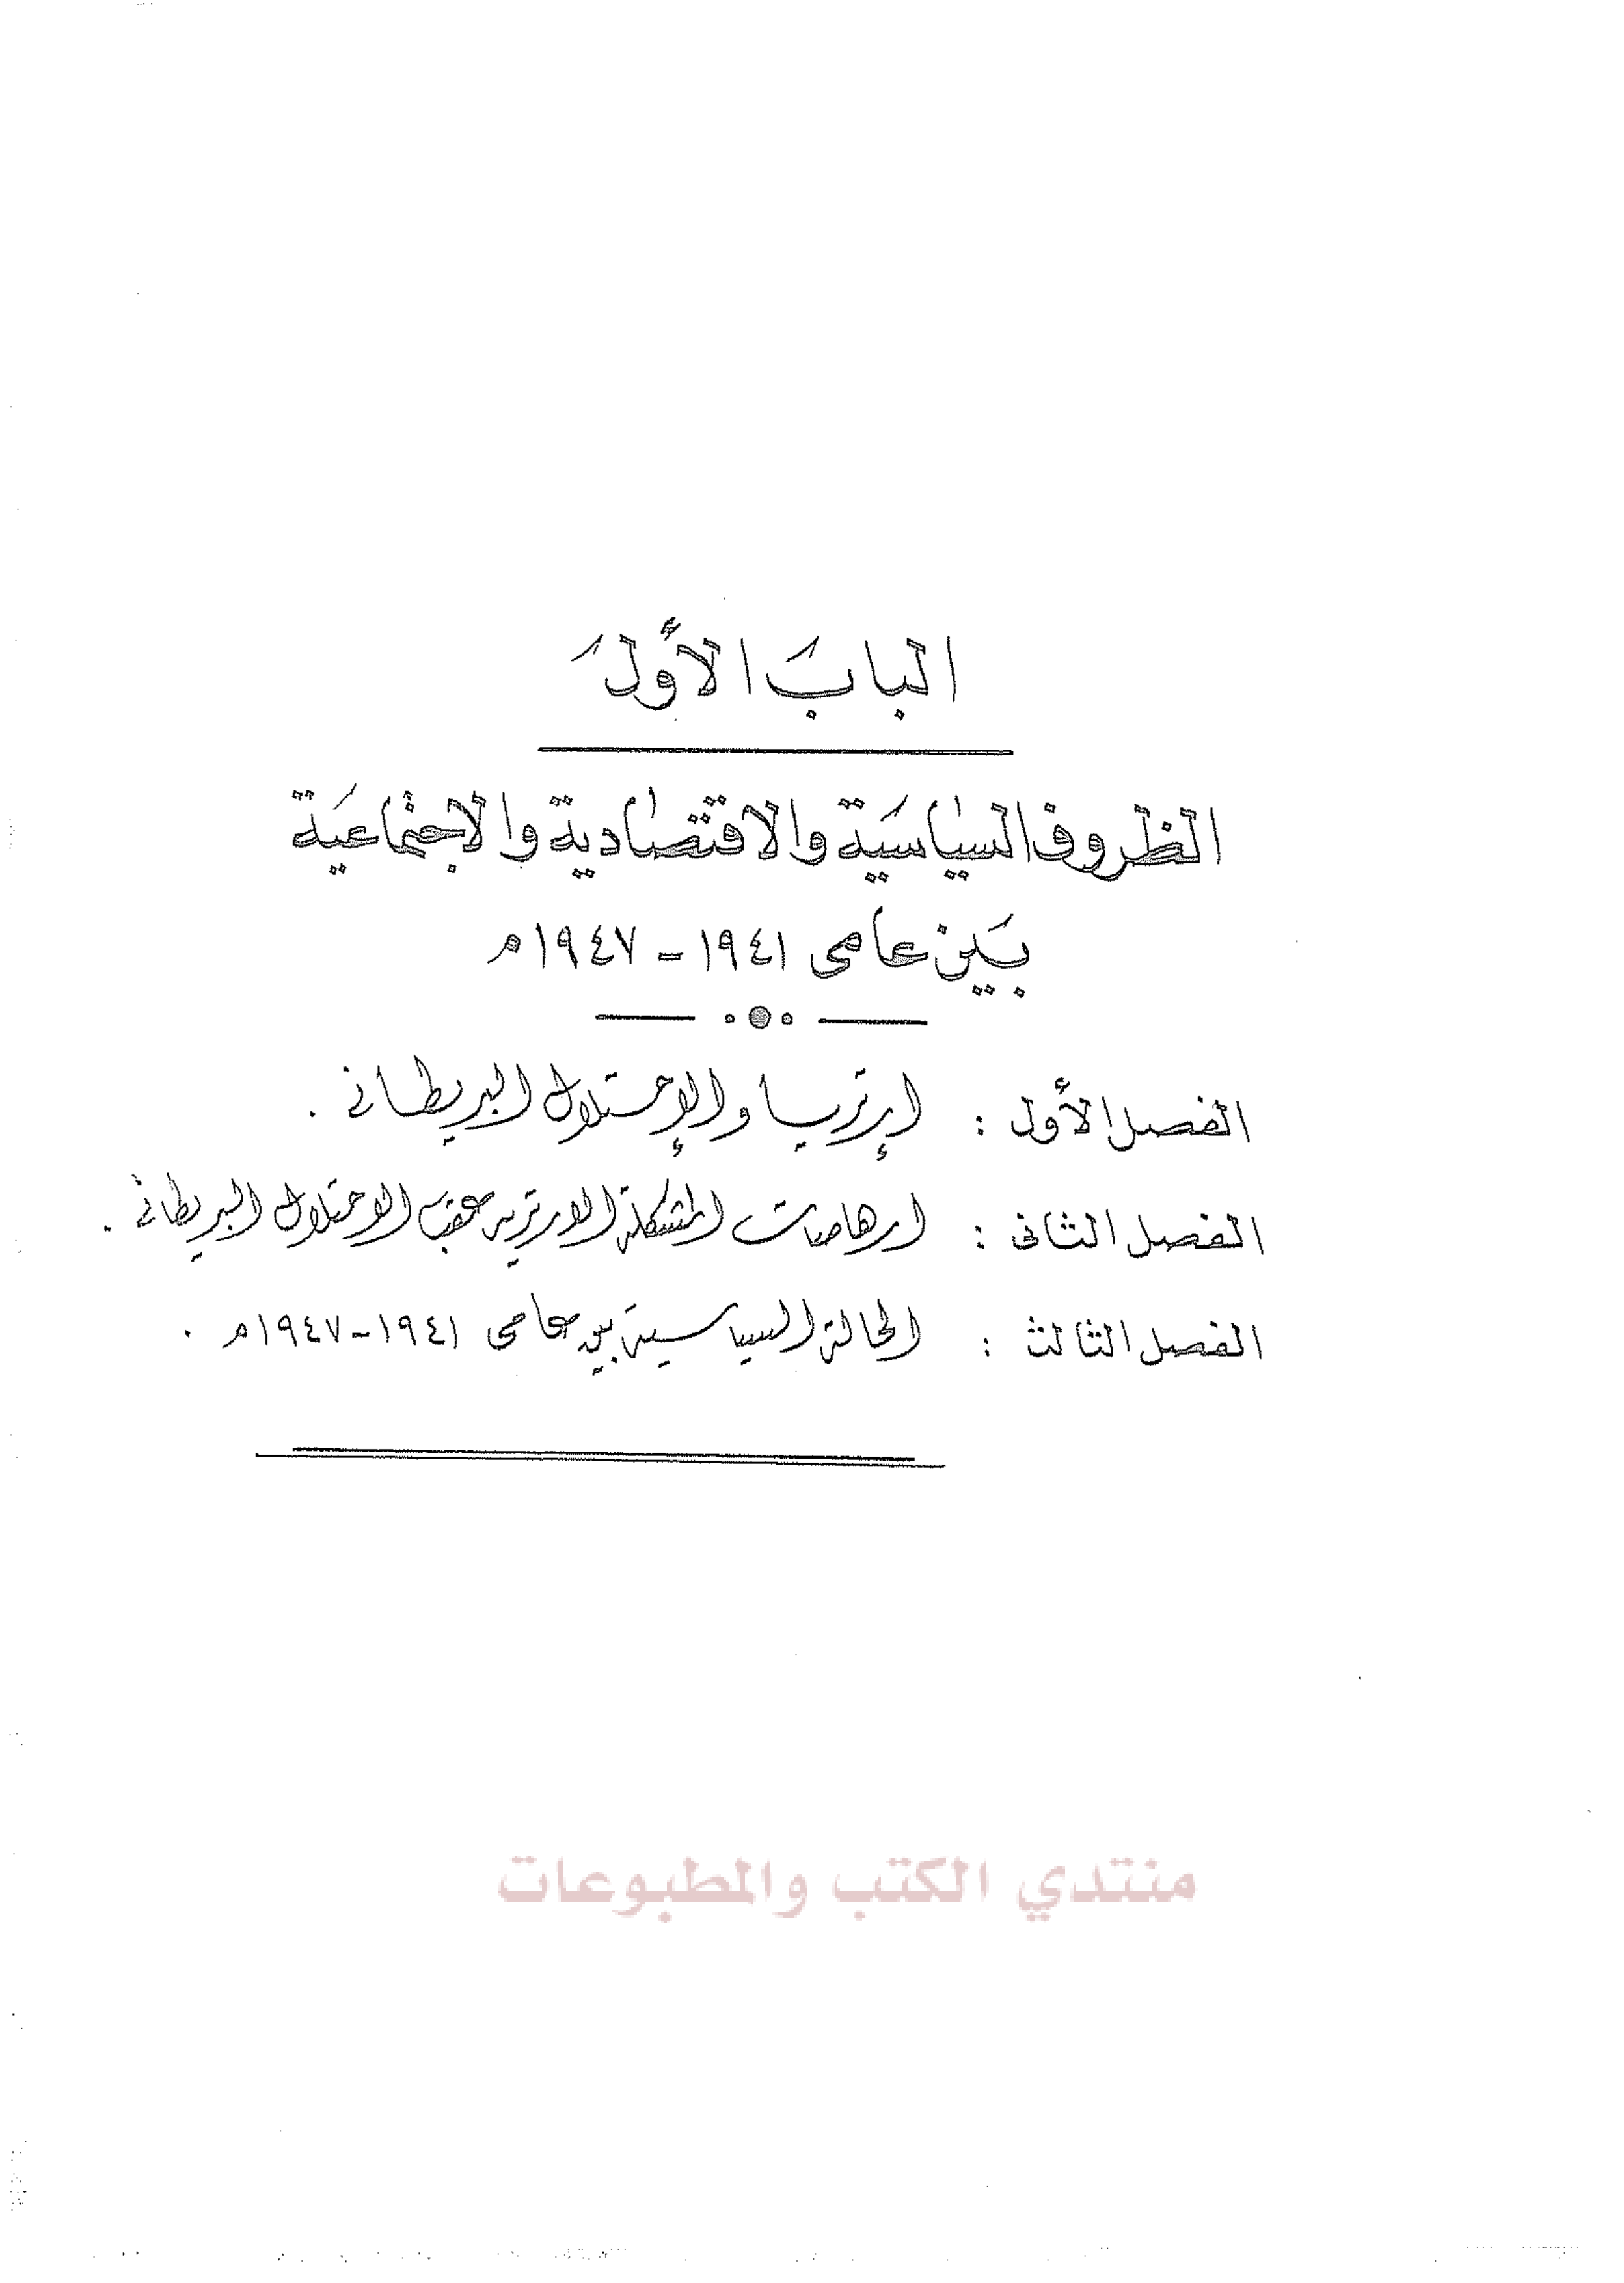 الباب الأول
الظروف السياسية والاقتصادية والاجتماعية
بين عامى ١٩٤١ - ١٩٤٧م
الفصل الأول : إرتريا والإحتلال البريطانى .
الفصل الثانى : ارهاصات المشكلة الارترية عقب الاحتلال البريطانى .
الفصل الثالث : الحالة السياسية بين عامى ١٩٤١-١٩٤٧م .
منتدي الكتب والمطبوعات